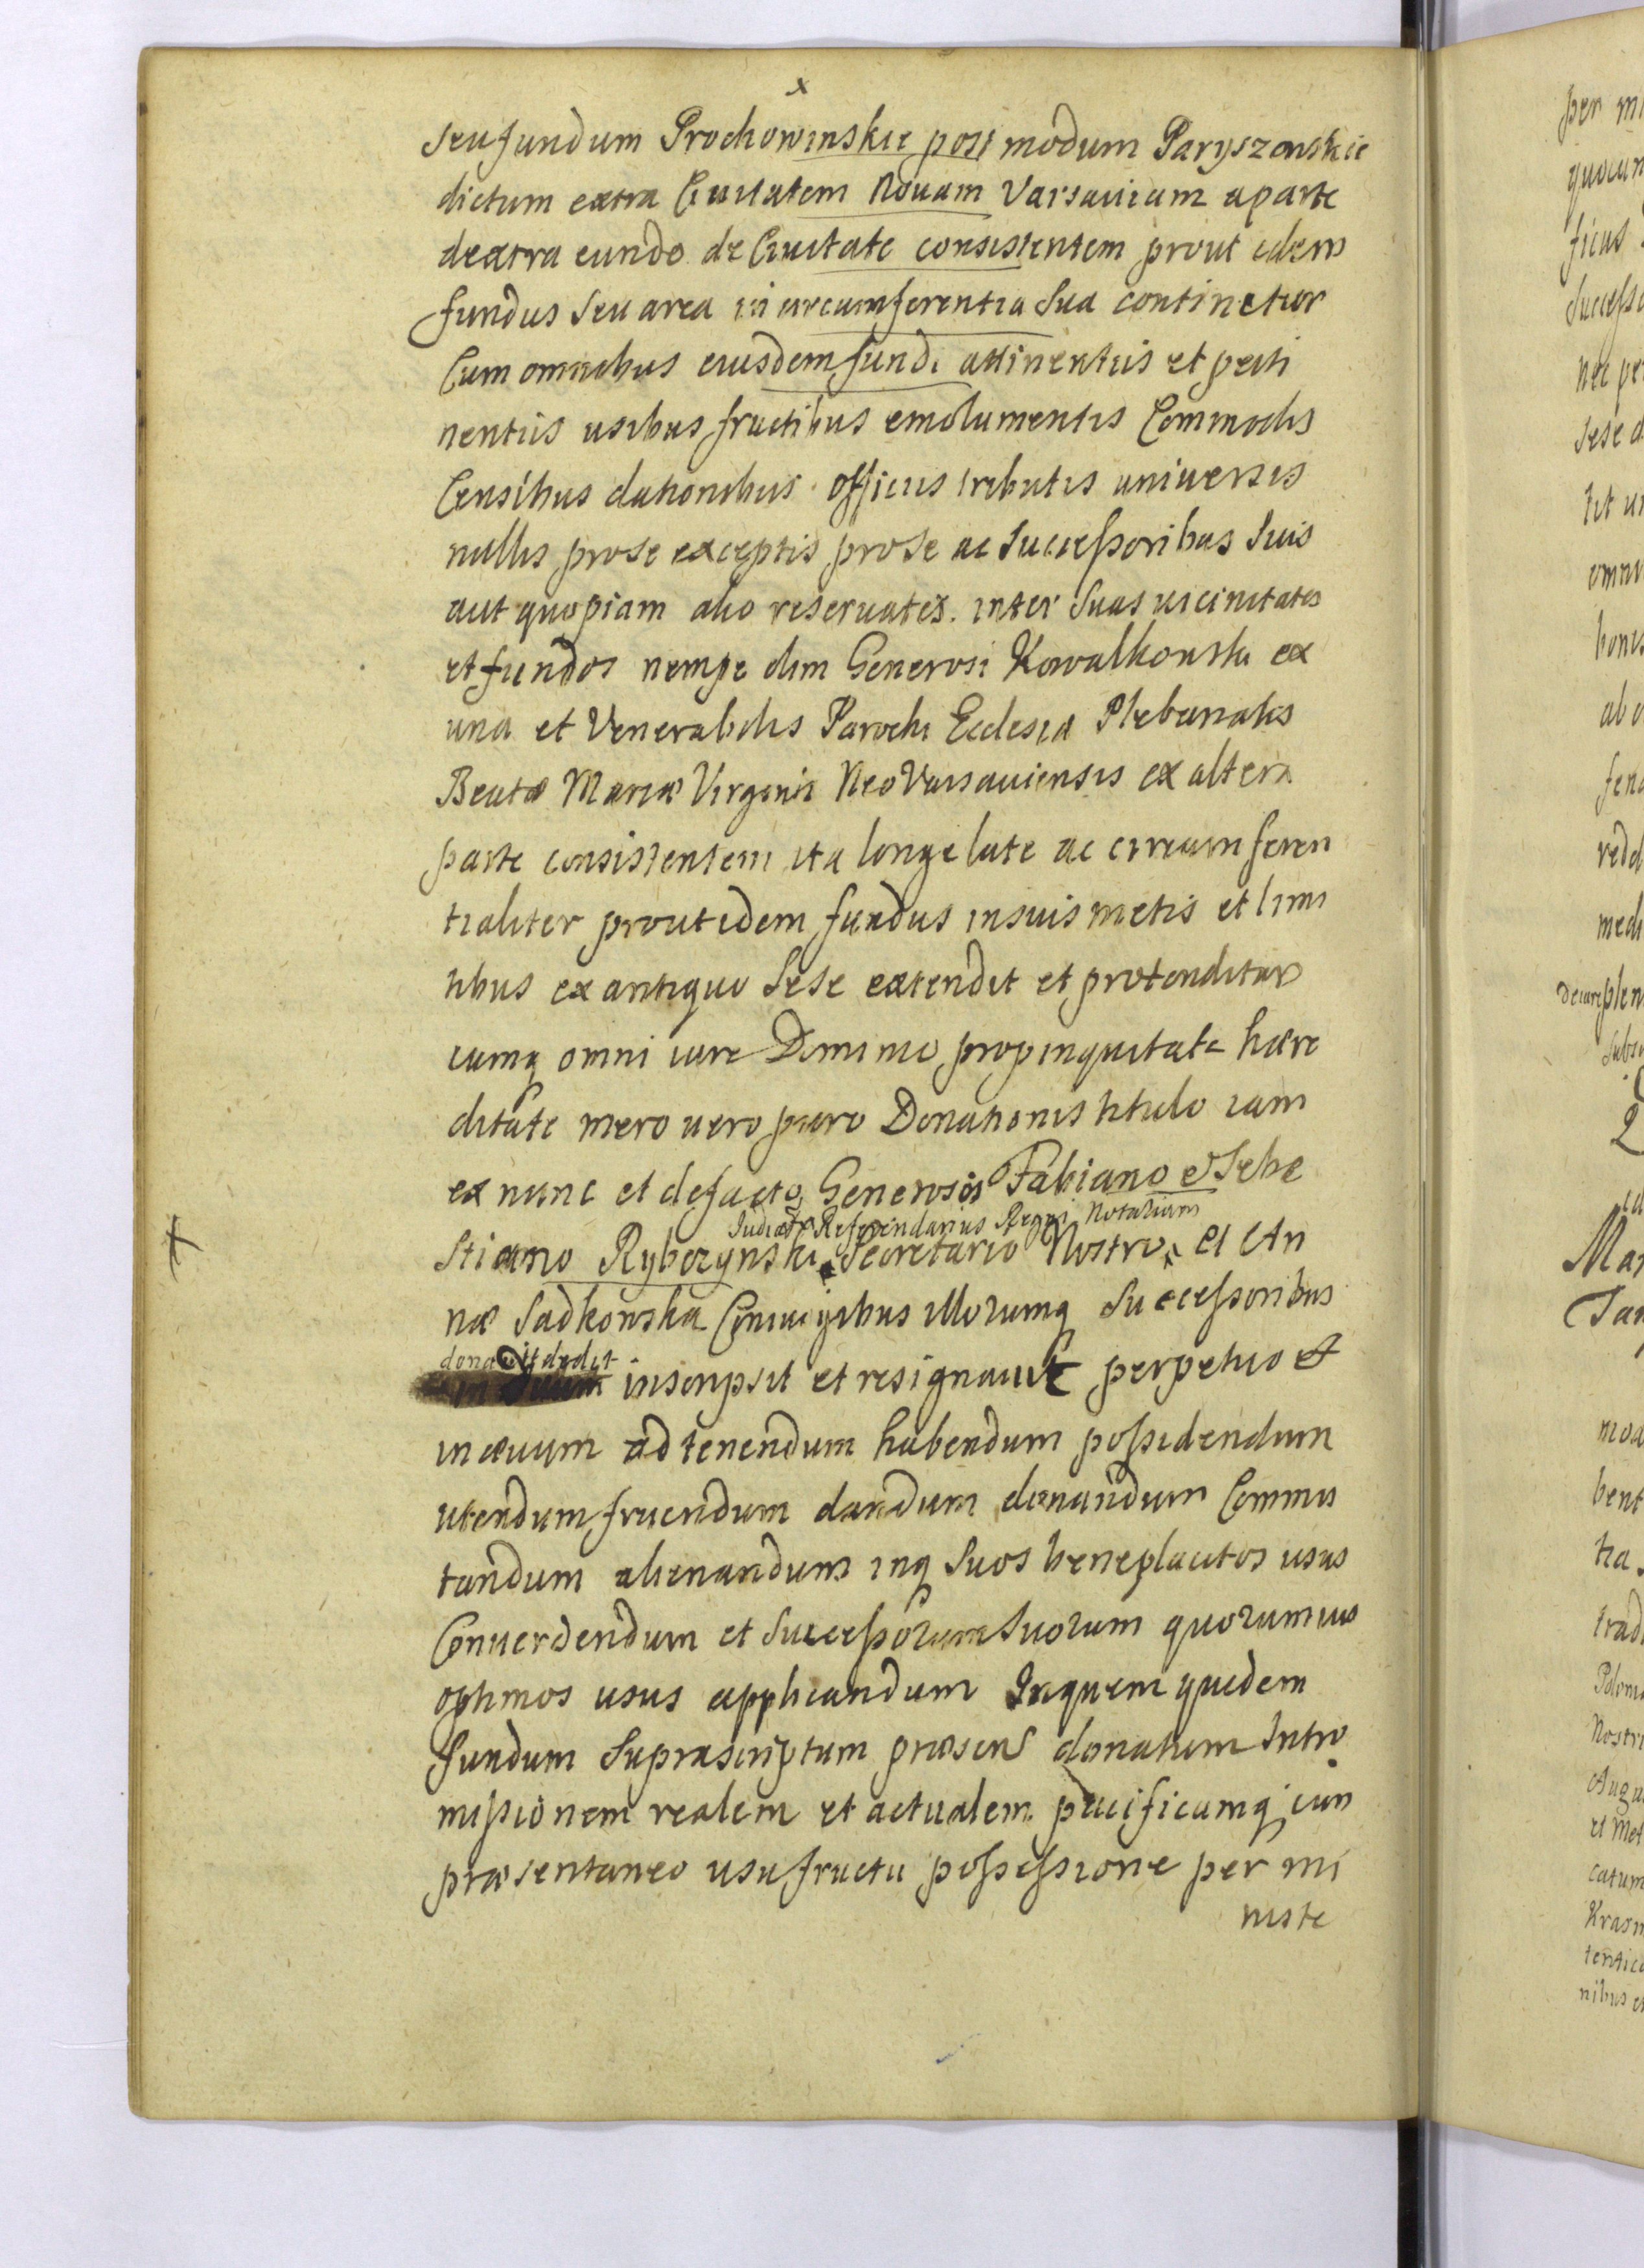 x
seu fundum Prochowinskie post modum Paryszowskie
dictum extra Ciuitatem Nouam Varsauiam a parte
dextra eundo de Ciuitate consistentem prout idem
fundus Seu area in circumferentia Sua continetur
Cum omnibus eiusdem fundi attinentiis et perti
nentiis usibus fructibus emolumentis Commodis
Censibus dationibus officiis tributis uniuersis
nullis pro se exceptis pro Se ac Successoribus Suis
aut quopiam alio reseruatis. inter Suas uicinitates
et fundos nempe olim Generosi Kowalkowski ex
una et Venerabilis Parochi Ecclesiæ Plebanalis
Beatæ Mariæ Virginis Neo Varsauiensis ex altera
parte consistentem ita longe late ac circumferen
tialiter prout idem fundus in suis metis et limi
tibus ex antiquo Sese extendit et protenditur
cumq omni iure Dominio propinquitate hære
ditate mero uero puro Donationis titulo iam
ex nunc et de facto Generosis Fabiano et Seba
Referendarius Regni Notarium
Stiano Rybczynski Secretario Nostro et An
næ Sadkowska Coniugibus illorumq Successoribus
donauit dedit
inscripsit et resignauit perpetuo et
in æuum ad tenendum habendum possidendum
utendum fruendum dandum donandum Commu
tandum alienandum inq Suos beneplacitos usus
Conuerdendum et Successorum Suorum quorumuis
optimos usus applicandum In quem quidem
fundum Suprascriptum præsens donatum Intro
missionem realem et actualem pacificamq cum
præsentaneo usufructu possessione per mi
niste